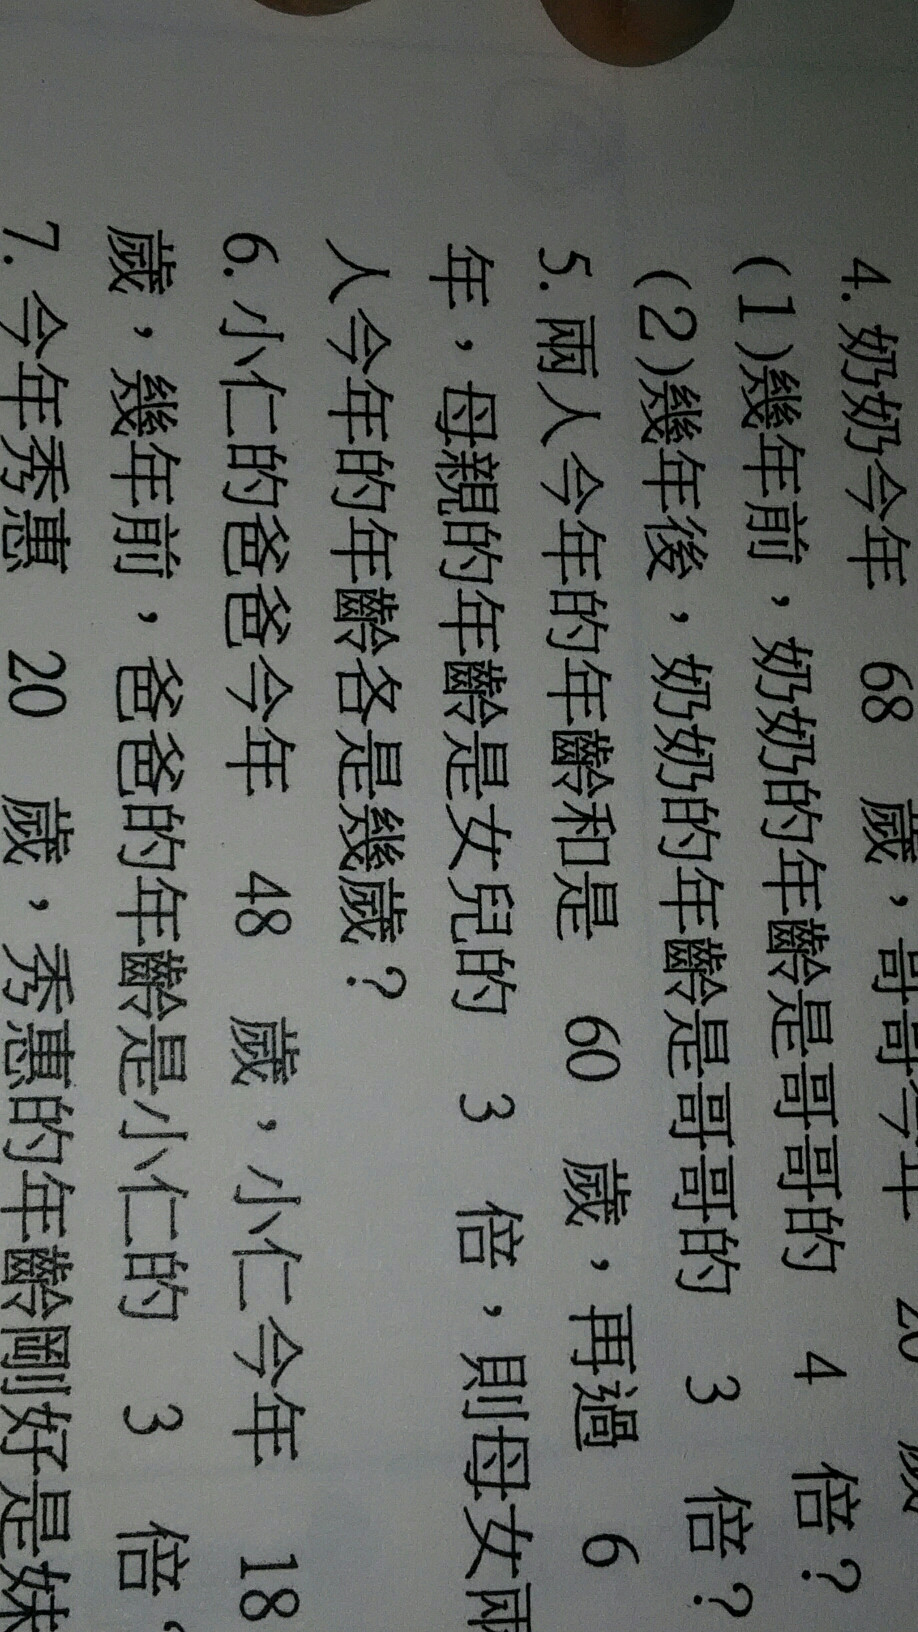 4. 奶奶今年 68 歲，哥哥今年 20 歲
(1)幾年前，奶奶的年齡是哥哥的 4 倍？
(2)幾年後，奶奶的年齡是哥哥的 3 倍？
5. 兩人今年的年齡和是 60 歲，再過 6
年，母親的年齡是女兒的 3 倍，則母女兩
人今年的年齡各是幾歲？
6. 小仁的爸爸今年 48 歲，小仁今年 18
歲，幾年前，爸爸的年齡是小仁的 3 倍
7. 今年秀惠 20 歲，秀惠的年齡剛好是妹